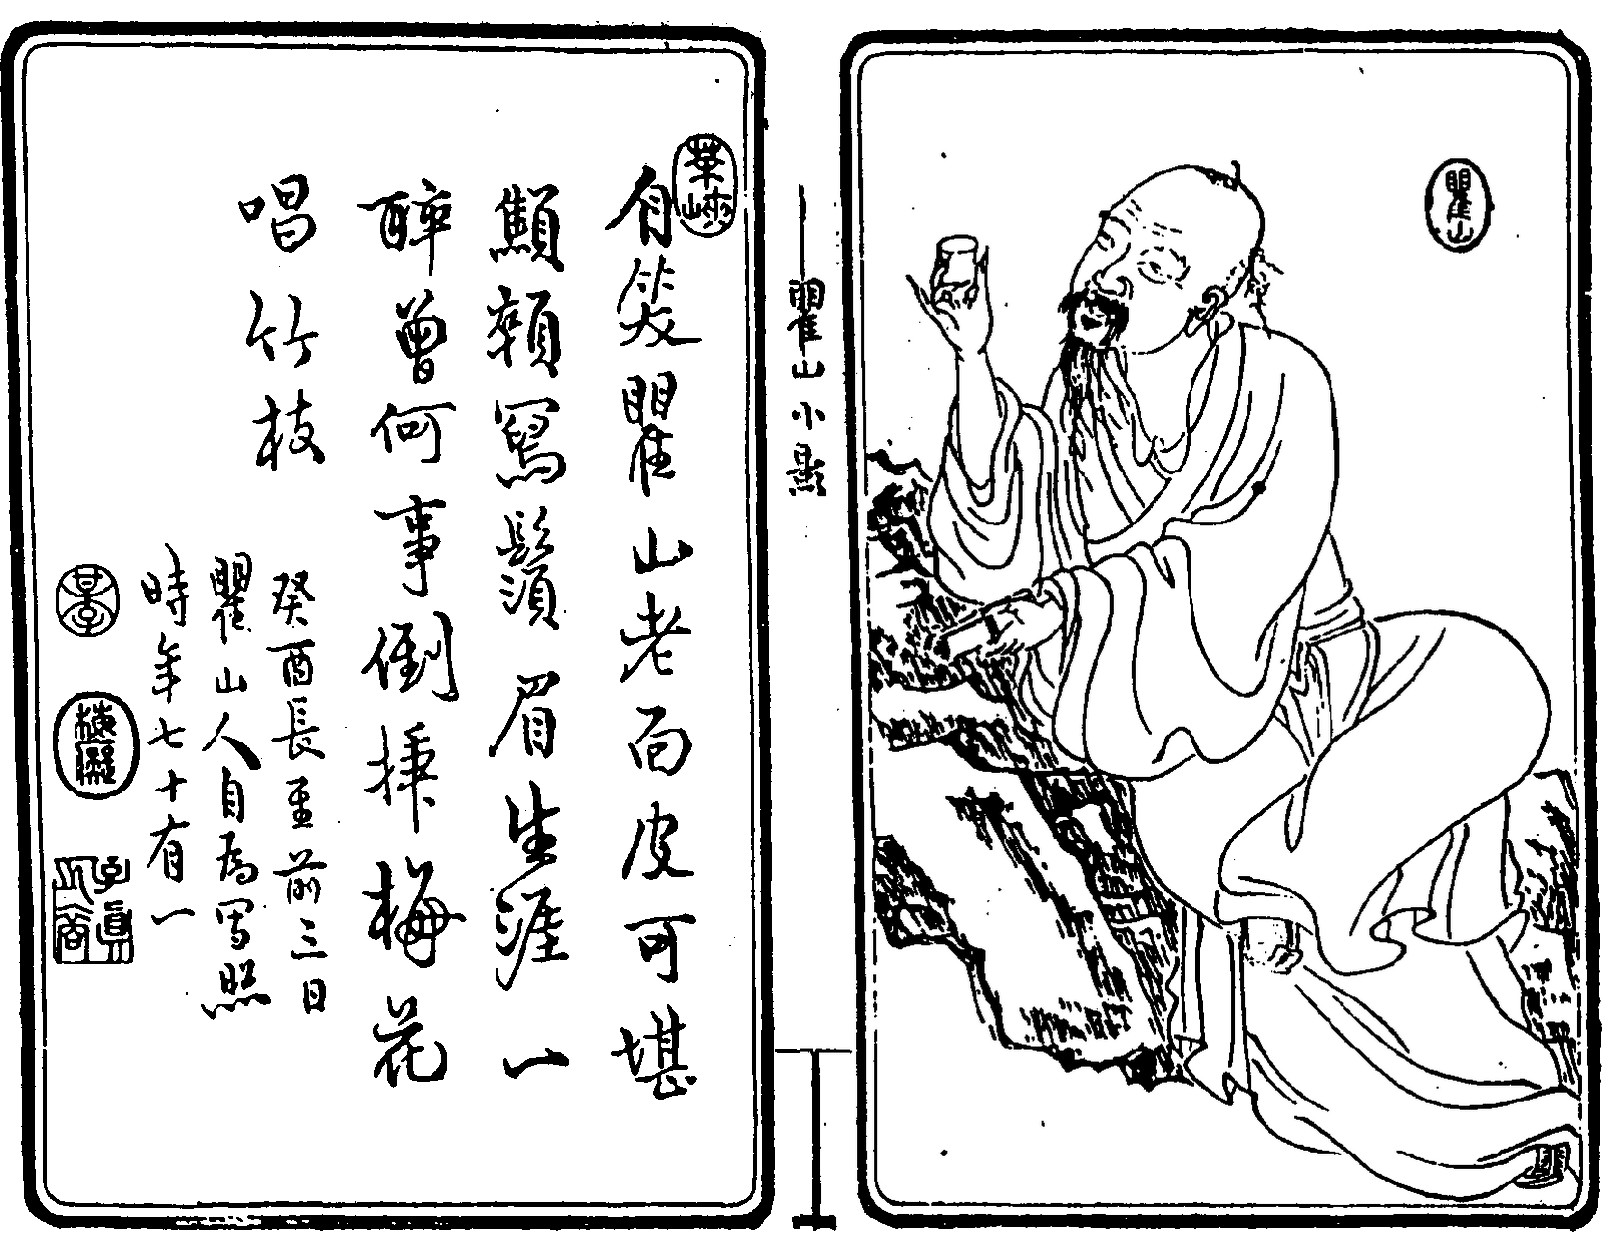 瞿山
瞿山小影
自笑瞿山老面皮可堪
顦顇寫鬚眉生涯一
醉曾何事倒插梅花
唱竹枝
癸酉長至前三日
瞿山人自為寫照
時年七十有一